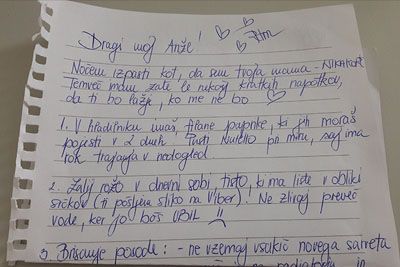 Dragi moj Anže!
Nočem izpasti kot, da sem tvoja mama - NIKAKOR
Temveč imam zate le nekaj kratkih napotkov,
da ti bo lažje, ko me ne bo
1. V hladilniku imaš filane paprike, ki jih moraš
pojesti v 2 dneh. Pusti Nutello pri miru, saj ima
rok trajanja v nedogled.
2. Zalij rožo v dnevni sobi tisto, ki ma liste v obliki
srčkov (ti pošljem sliko na Viber). Ne zlivaj preveč
vode, ker jo boš UBIL !!
3. Brisanje posode: - ne vzemaj vsakič novega